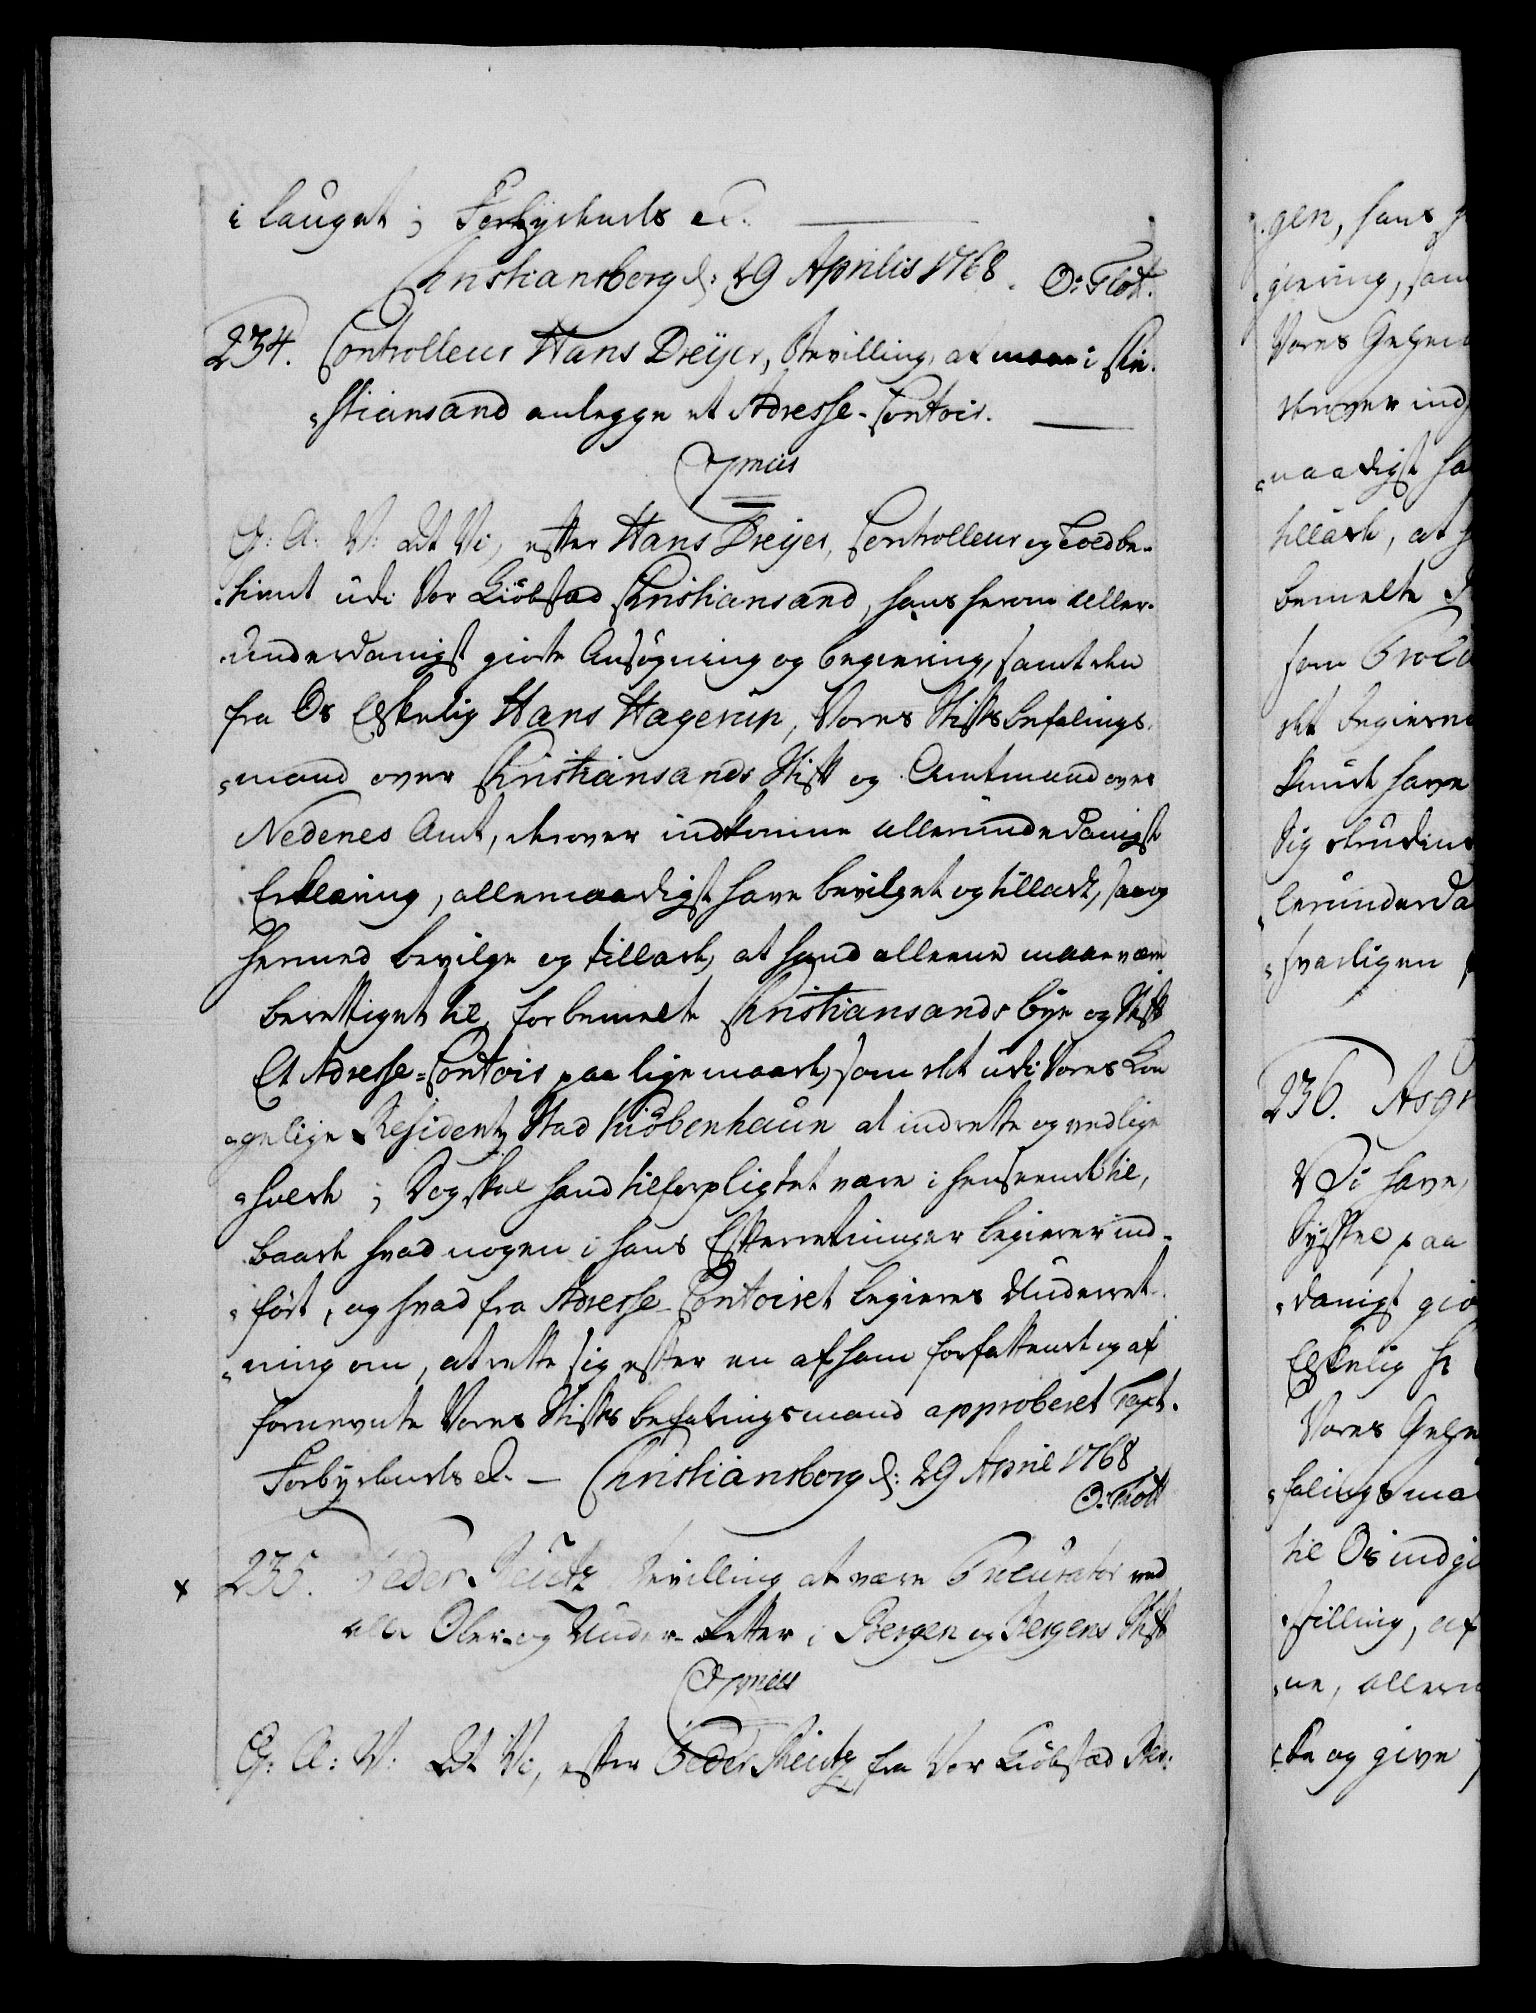 i lauget; Forbydende &c.
Christiansborg d: 29 Aprilis 1768. O: Thott.
234. Controlleur Hans Dreyer, Bevilling, at maae i Chri-
stiansand anlegge et Adresse-Contoir.
C7mus
G: A: V: At Vi, efter Hans Dreyer, Controlleur og Toldbe-
tient udi Vor Kiøbstæd Christiansand, hans herom aller-
underdanigst giorte Ansøgning og begiering, samt den
fra Os Elskelig Hans Hagerup, Vores Stiftsbefalings-
mand over Christiansands Stift og Amtmand over
Nedenes Amt, derover indkomne allerunderdanigste
Erklæring, allernaadigst have bevilget og tilladt, saa og
hermed bevilge og tillade, at hand alleene maae være
berettiget til, for bemelte Christiansands bye og Stift
Et Adresse-Contoir paa lige maade, som det udi Vores Kon-
gelige Residentz Stad Kiøbenhaun at indrette og vedlige
holde; Dog skal hand tilforpligtet være i henseende til,
baade hvad nogen i hans Efterretninger begierer ind-
ført, og hvad fra Adresse-Contoiret begieres Underret-
ning om, at rette sig efter en af ham forfattende og af
fornevnte Vores Stiftsbefalingsmand approberet Taxt.
Forbydende &c. – Christiansborg d: 29 April 1768
O: Thott
x 235. Peder Reutz Bevilling at være Procurator ved
alle Over- og Under-Retter i Bergen og Bergens Stift
C7mus
G: A: V: At Vi, efter Peder Reutz fra Vor Kiøbstæd Ber-
gen, hans
giering, sam
Vores Geheim
skriver ind
naadigst ha
tillade, at
bemelte
som Procu
det begieren
kundt have
sig
lerunderda
svarligen
236. Asgr
Vi have,
Syssel paa
danigst gio
Elskelig H
Vores Gehe
falingsma
til Os indgi
stilling, af
ne, allern
te og give